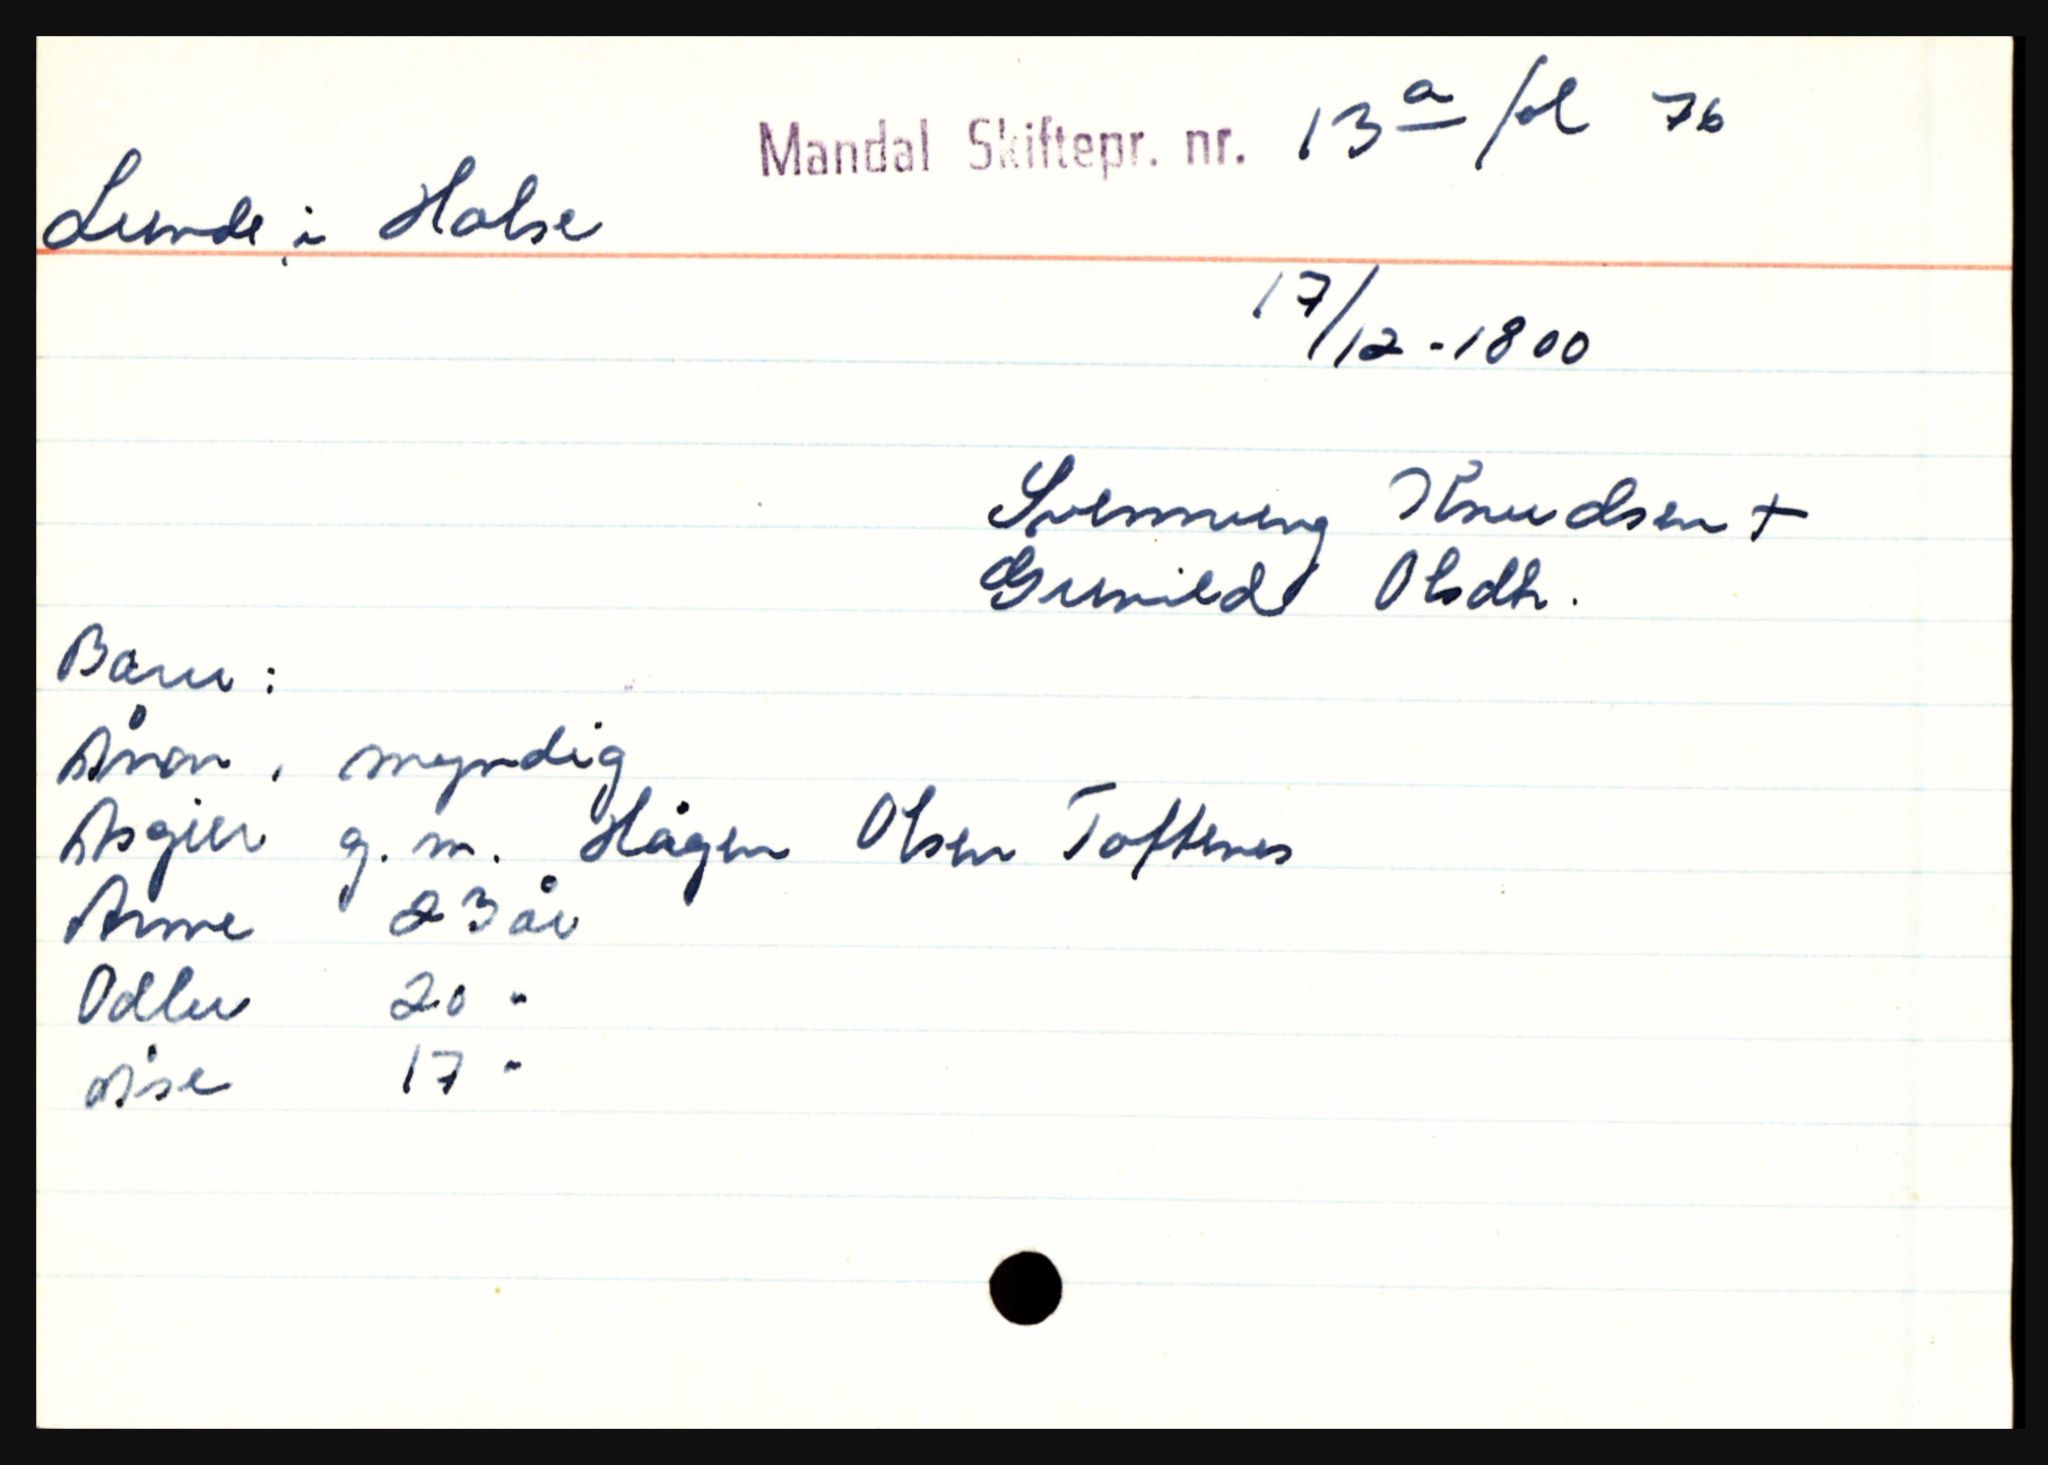 Mandal Skiftepr. nr. 13a fol 76
Lunde i Halse
17/12-1800
Svennung Knudsen +
Gunild Olsdtr.
Barn:
Ånon, myndig
Asgier g. m. Hågen Olsen Toftenes
Anne 23 år
Odler 20 "
Åse 17 "